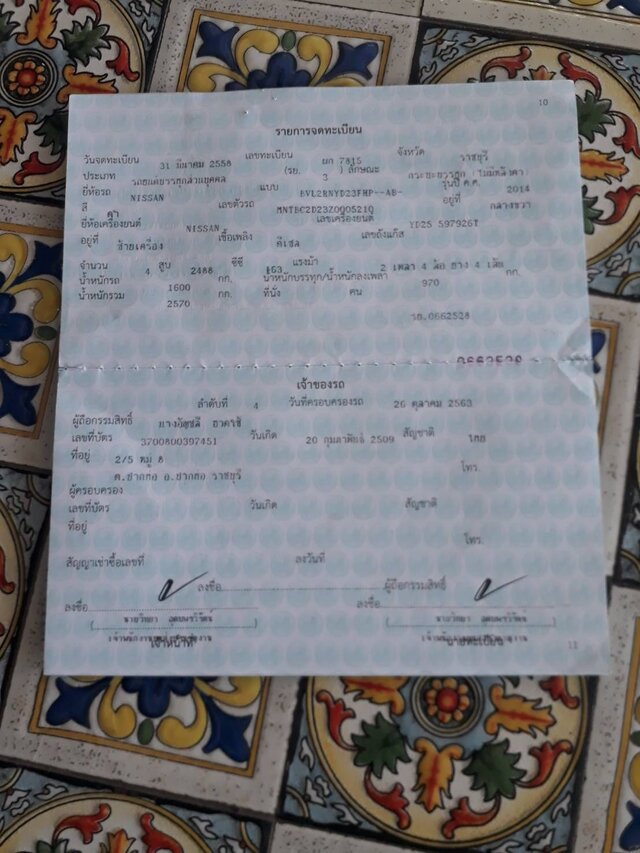 10
รายการจดทะเบียน
วันจดทะเบียน 31 มีนาคม 2558 เลขทะเบียน ผก 7815 จังหวัด ราชบุรี
ประเภท รถยนต์บรรทุกส่วนบุคคล (รย. 3 ) ลักษณะ กระบะบรรทุก (ไม่มีหลังคา)
ยี่ห้อรถ NISSAN แบบ BVL2RNYD23FHP--AB- รุ่นปี ค.ศ. 2014
สี ดำ เลขตัวรถ MNTBC2D23Z0005210 อยู่ที่ กลางขวา
ยี่ห้อเครื่องยนต์ NISSAN เลขเครื่องยนต์ YD25 597926T
อยู่ที่ ซ้ายเครื่อง เชื้อเพลิง ดีเซล เลขถังแก๊ส
จำนวน 4 สูบ 2488 ซีซี 163 แรงม้า 2 เพลา 4 ล้อ ยาง 4 เส้น
น้ำหนักรถ 1600 กก. น้ำหนักบรรทุก/น้ำหนักลงเพลา 970 กก.
น้ำหนักรวม 2570 กก. ที่นั่ง คน
รถ.0662528
0662528
เจ้าของรถ
ลำดับที่ 4 วันที่ครอบครองรถ 26 ตุลาคม 2563
ผู้ถือกรรมสิทธิ์ นางอัญชลี
เลขที่บัตร 3700800397451 วันเกิด 20 กุมภาพันธ์ 2509 สัญชาติ ไทย
ที่อยู่ 2/5 หมู่ 8 โทร.
ต.ปากท่อ อ.ปากท่อ ราชบุรี
ผู้ครอบครอง
เลขที่บัตร วันเกิด สัญชาติ
ที่อยู่
โทร.
สัญญาเช่าซื้อเลขที่ ลงวันที่
ลงชื่อ ผู้ถือกรรมสิทธิ์
ลงชื่อ ลงชื่อ
นายวิทยา นายวิทยา
เจ้าหน้าที่ นายทะเบียน
11